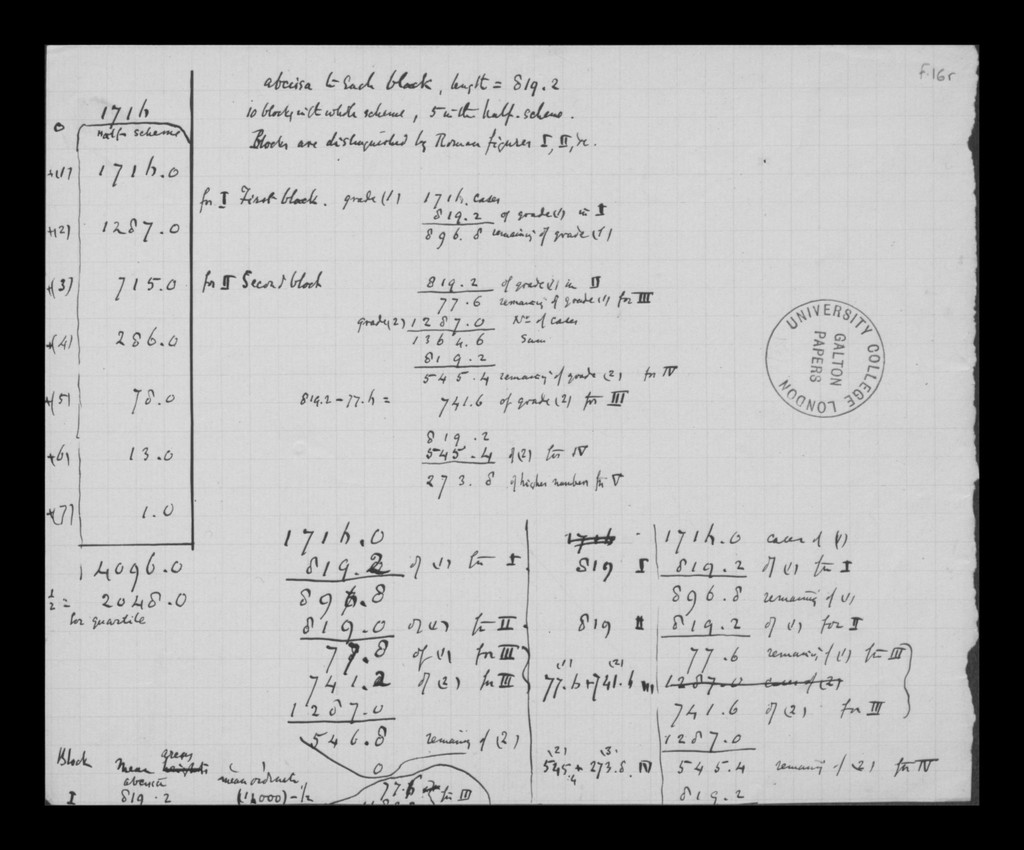 F.16r
abcissa to each block, length = 819.2
10 blocks in the whole scheme, 5 in the half-scheme.
Blocks are distinguished by Roman figures I, II, &c.
0 1716
half scheme
+(1) 1716.0
+(2) 1287.0
+(3) 715.0
+(4) 286.0
+(5) 78.0
+(6) 13.0
+(7) 1.0
4096.0
1/2 = 2048.0
for quartile
for I First block. grade (1) 1716. cases
819.2 of grade (1) in I
896.8 remaining of grade (1)
for II Second block 819.2 of grade (1) in II
77.6 remaining of grade (1) for III
grade (2) 1287.0 No of cases
1364.6 Sum
819.2
545.4 remaining of grade (2) for IV
819.2 - 77.6 = 741.6 of grade (2) for III
819.2
545.4 of (2) for IV
273.8 of higher numbers for V
UNIVERSITY COLLEGE LONDON
GALTON
PAPERS
1716.0
819.2 of (1) for I
896.8
819.0 of (1) for II
77.8 of (1) for III
741.2 of (2) for III
1287.0
546.8 remaining of (2)
0
77.6 for III
1716
819 I
819 II
(1) (2)
77.6 + 741.6 III
(2) (3)
545.4 + 273.8. IV
1716.0 cases of (1)
819.2 of (1) for I
896.8 remaining of (1)
819.2 of (1) for II
77.6 remaining of (1) for III
1287.0 cases of (2)
741.6 of (2) for III
1287.0
545.4 remaining of (2) for IV
819.2
Block mean heights
abcissa mean ordinate
I 819.2 (1,000) - 1/2